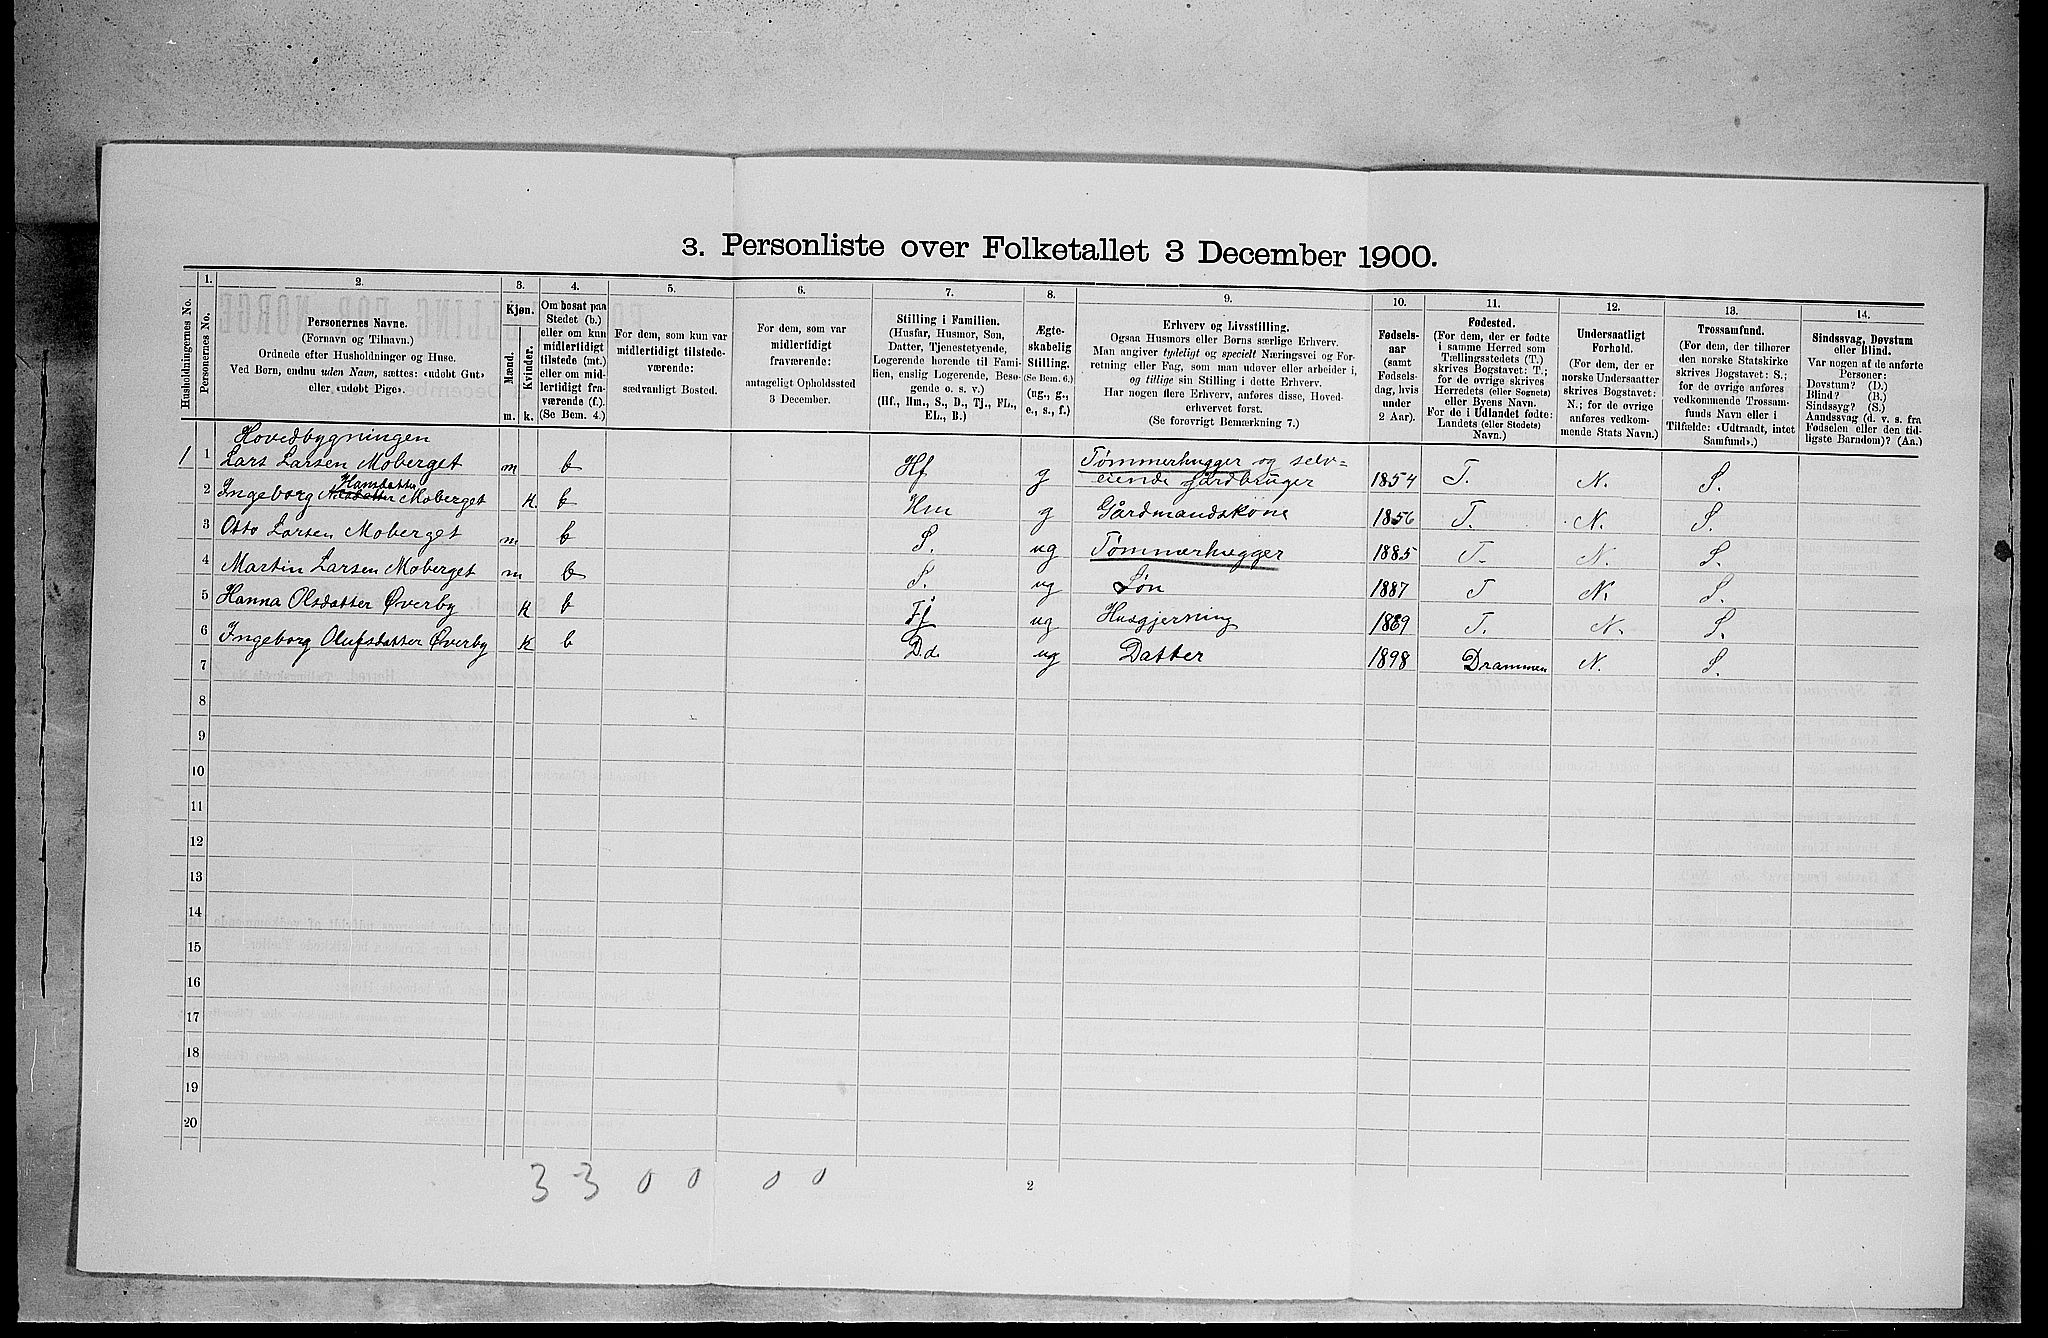 3. Personliste over Folketallet 3 December 1900.
Husholdningernes No.
1.
Personernes No.
2.
Personernes Navne.
(Fornavn og Tilnavn.)
Ordnede efter Husholdninger og Huse.
Ved Børn, endnu uden Navn, sættes: «udøbt Gut»
eller «udøbt Pige».
3.
Kjøn.
Mænd.
Kvinder.
m. k.
4.
Om bosat paa
Stedet (b.)
eller om kun
midlertidigt
tilstede (mt.)
eller om mid-
lertidigt fra-
værende (f.).
(Se Bem. 4.)
5.
For dem, som kun var
midlertidigt tilstede-
værende:
sædvanligt Bosted.
6.
For dem, som var
midlertidigt
fraværende:
antageligt Opholdssted
3 December.
7.
Stilling i Familien.
(Husfar, Husmor, Søn,
Datter, Tjenestetyende,
Logerende hørende til Fami-
lien, enslig Logerende, Besø-
gende o. s. v.)
(Hf., Hm., S., D., Tj., FL.,
EL., B.)
8.
Ægte-
skabelig
Stilling.
(Se Bem. 6.)
(ug., g.,
e., s., f.)
9.
Erhverv og Livsstilling.
Ogsaa Husmors eller Børns særlige Erhverv.
Man angiver tydeligt og specielt Næringsvei og For-
retning eller Fag, som man udøver eller arbeider i,
og tillige sin Stilling i dette Erhverv.
Har nogen flere Erhverv, anføres disse, Hoved-
erhvervet først.
(Se forøvrigt Bemærkning 7.)
10.
Fødsels-
aar
(samt
Fødsels-
dag, hvis
under
2 Aar).
11.
Fødested.
(For dem, der er fødte
i samme Herred som
Tællingsstedets (T.)
skrives Bogstavet: T.;
for de øvrige skrives
Herredets (eller Sognets)
eller Byens Navn.
For de i Udlandet fødte:
Landets (eller Stedets)
Navn.)
12.
Undersaatligt
Forhold.
(For dem, der er
norske Undersaatter
skrives Bogstavet:
N.; for de øvrige
anføres vedkom-
mende Stats Navn.)
13.
Trossamfund.
(For dem, der tilhører
den norske Statskirke
skrives Bogstavet: S.;
for de øvrige anføres
vedkommende Trossam-
funds Navn eller i
Tilfælde: «Udtraadt, intet
Samfund».)
14.
Sindssvag, Døvstum
eller Blind.
Var nogen af de anførte
Personer:
Døvstum? (D.)
Blind? (B.)
Sindssyg? (S.)
Aandssvag (d. v. s. fra
Fødselen eller den tid-
ligste Barndom)? (Aa.)
Hovedbygningen
1 1 Lars Larsen Moberget m b Hf g Tømmerhugger og selv=
eiende Jordbruger 1854 T. N. S.
Hansdatter
2 Ingeborg Nilsdatter Moberget K. b Hm g Gårdmandskone 1856 T. N. S.
3 Otto Larsen Moberget m b S. ug Tømmerhugger 1885 T. N. S.
4 Martin Larsen Moberget m b S. ug Søn 1887 T N. S.
5 Hanna Olsdatter Øverby K b Tj ug Husgjerning 1869 T. N. S.
6 Ingeborg Olufsdatter Øverby K b D.d. ug Datter 1898 Drammen N. S.
7
8
9
10
11
12
13
14
15
16
17
18
19
20
3 3 0 0 0 0
2